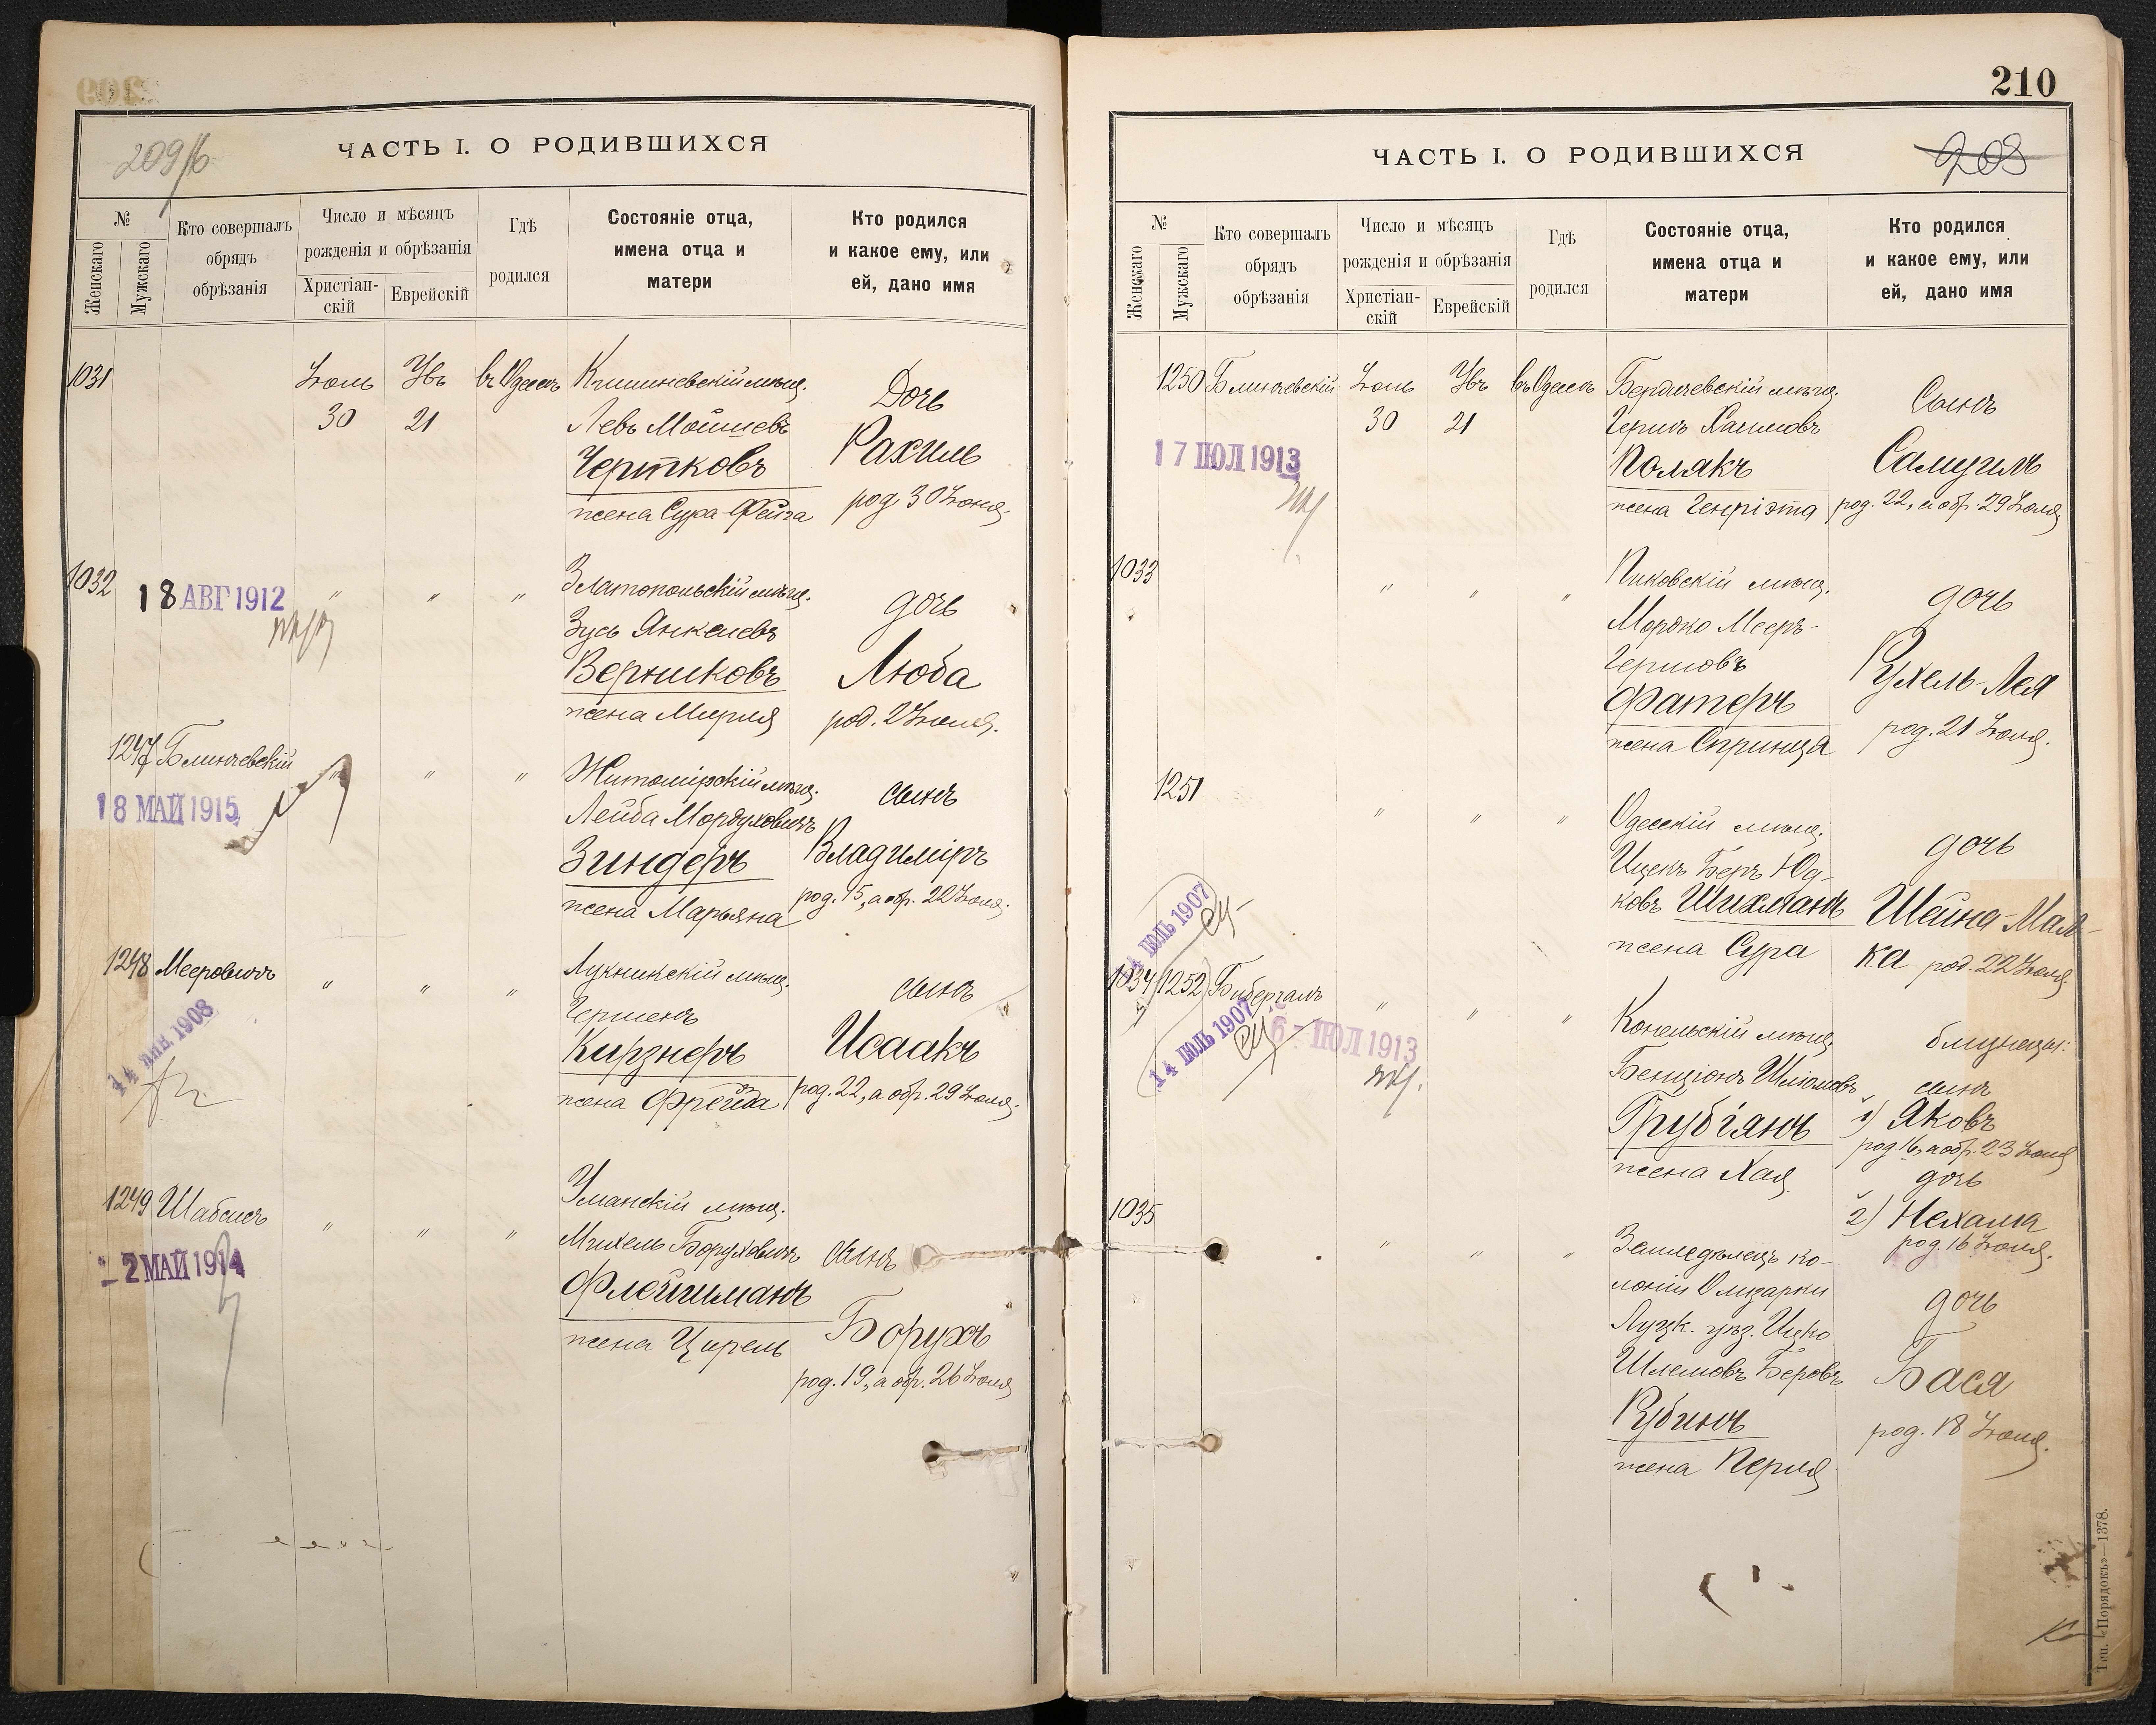 209/б
ЧАСТЬ I. О РОДИВШИХСЯ
№
Женскаго
Мужскаго
Кто совершалъ
обрядъ
обрѣзанія
Число и мѣсяцъ
рожденія и обрѣзанія
Христіан-
скій
Еврейскій
Гдѣ
родился
Состояніе отца,
имена отца и
матери
Кто родился
и какое ему, или
ей, дано имя
1031
Іюль
30
Увъ
21
въ Одессѣ
Кишиневскій мѣщ.
Левъ Мошиевъ
Чертковъ
жена Сура-Фейга
Дочь
Рахиль
род. 30 Іюня.
1032
18 АВГ 1912
"
"
"
Златопольскій мѣщ.
Зусь Янкелевъ
Верниковъ
жена Мирля
дочь
Люба
род. 2 Іюля.
1247 Блинчевскій
18 МАЙ 1915
"
"
"
Житомірскій мѣщ.
Лейба Мордуховичъ
Зиндеръ
жена Марьяна
сынъ
Владиміръ
род. 15, а обр. 22 Іюля.
1248 Мееровичъ
14 ЯНВ. 1908
"
"
"
мѣщ.
Гершенъ
Кирзнеръ
жена Фрейда
сынъ
Исаакъ
род. 22, а обр. 29 Іюля.
1249 Шабсисъ
- 2 МАЙ 1914
"
"
"
Уманскій мѣщ.
Михель Боруховичъ
Флейшманъ
жена Цирель
сынъ
Борухъ
род. 19, а обр. 26 Іюля
210
208
ЧАСТЬ I. О РОДИВШИХСЯ
№
Женскаго
Мужскаго
Кто совершалъ
обрядъ
обрѣзанія
Число и мѣсяцъ
рожденія и обрѣзанія
Христіан-
скій
Еврейскій
Гдѣ
родился
Состояніе отца,
имена отца и
матери
Кто родился
и какое ему, или
ей, дано имя
1250 Блинчевскій
17 ІЮЛ 1913
Іюль
30
Увъ
21
въ Одессѣ
Бердичевскій мѣщ.
Гершъ Хаимовъ
Полякъ
жена Генріэта
Сынъ
Самуилъ
род. 22, а обр. 29 Іюля
1033
"
"
"
Пиковскій мѣщ.
Мордко Мееръ-
Гершовъ
Фатеръ
жена Спринца
дочь
Рухель-Лея
род. 21 Іюля.
1251
"
"
"
Одесскій мѣщ.
Ицекъ Беръ Юд-
ковъ Шихманъ
жена Сура
дочь
Шейна-Мал-
ка род. 22 Іюля.
14 ІЮЛЬ 1907
1034 1252 Бибергалъ
14 ІЮЛЬ 1907
6 - ІЮЛ 1913
"
"
"
Конельскій мѣщ.
Бенціонъ Шліомовъ
Грубіянъ
жена Хая
близнецы:
сынъ
1) Яковъ
род. 16, а обр. 23 Іюля
дочь
2) Нехама
род. 16 Іюля.
1035
"
"
"
Земледѣлецъ ко-
лоніи Олизарки
Луцк. уѣз. Ицко
Шлемовъ Беровъ
Рубинъ
жена Перля
дочь
Бася
род. 18 Іюля.
Тип. «Порядокъ»—1378.